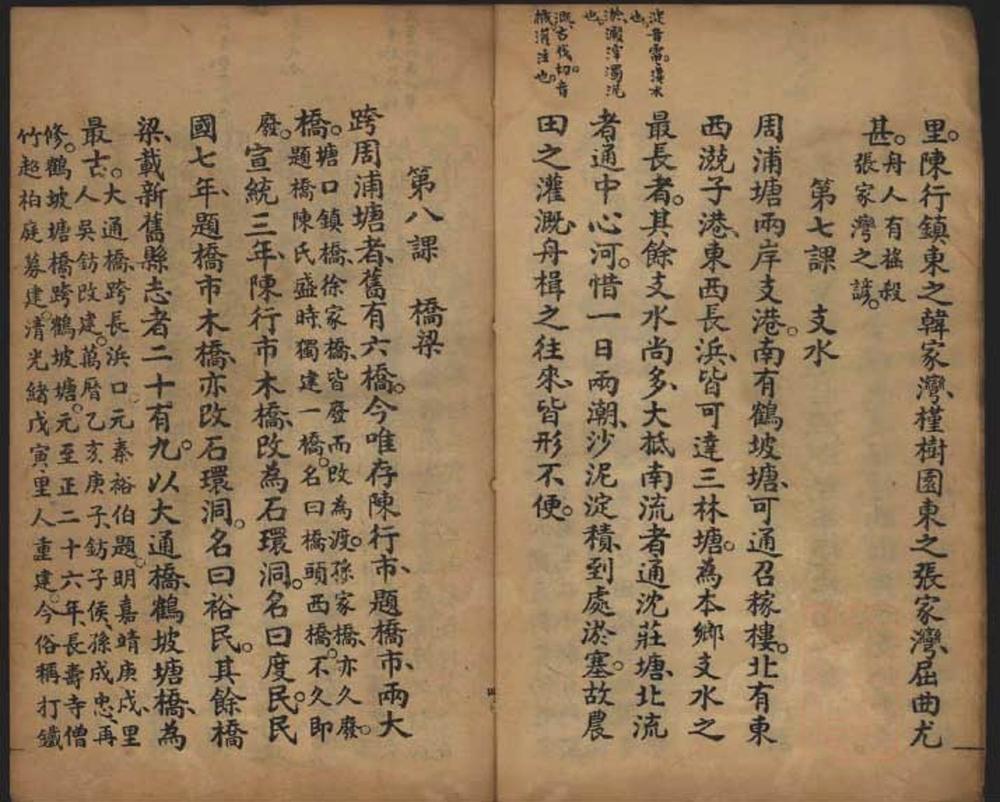 里。陳行鎮東之韓家灣、槿樹園東之張家灣、屈曲尤
甚。舟人有搖殺
張家灣之諺。
第七課　支水
周浦塘兩岸支港。南有鶴坡塘、可通召稼樓。北有東
西漎子港、東西長浜、皆可達三林塘。為本鄉支水之
最長者。其餘支水尚多、大柢南流者通沈莊塘、北流
者通中心河。惜一日兩潮、沙泥淀積、到處淤塞。故農
田之灌溉、舟楫之往來、皆形不便。
淀、音電。淺水
也。
淤、澱滓濁泥
也。
溉、古代切、音
槩、灌注也。
第八課　橋梁
跨周浦塘者、舊有六橋。今唯存陳行市、題橋市、兩大
橋。塘口鎮橋、徐家橋、皆廢而改為渡。孫家橋、亦久廢。
題橋陳氏盛時、獨建一橋、名曰橋頭西橋。不久即
廢。宣統三年、陳行市木橋、改為石環洞。名曰度民。民
國七年、題橋市木橋、亦改石環洞。名曰裕民。其餘橋
梁、載新舊縣志者二十有九。以大通橋、鶴坡塘橋、為
最古。大通橋、跨長浜口、元秦裕伯題。明嘉靖庚戌、里
人吳鈁改建。萬曆乙亥庚子、鈁子侯、孫成忠、再
修。鶴坡塘橋、跨鶴坡塘。元至正二十六年、長壽寺僧
竹超柏庭募建。清光緒戊寅、里人重建。今俗稱打鐵